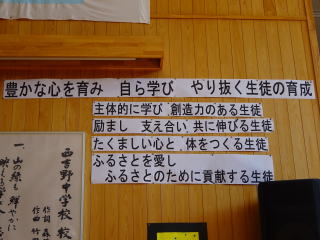 豊かな心を育み　自ら学び　やり抜く生徒の育成
主体的に学び 創造力のある生徒
励まし　支え合い 共に伸びる生徒
たくましい心と 体をつくる生徒
ふるさとを愛し
ふるさとのために貢献する生徒
西吉野中学校 校
作詞 森
作曲 竹
一、山の緑も 鮮やかに